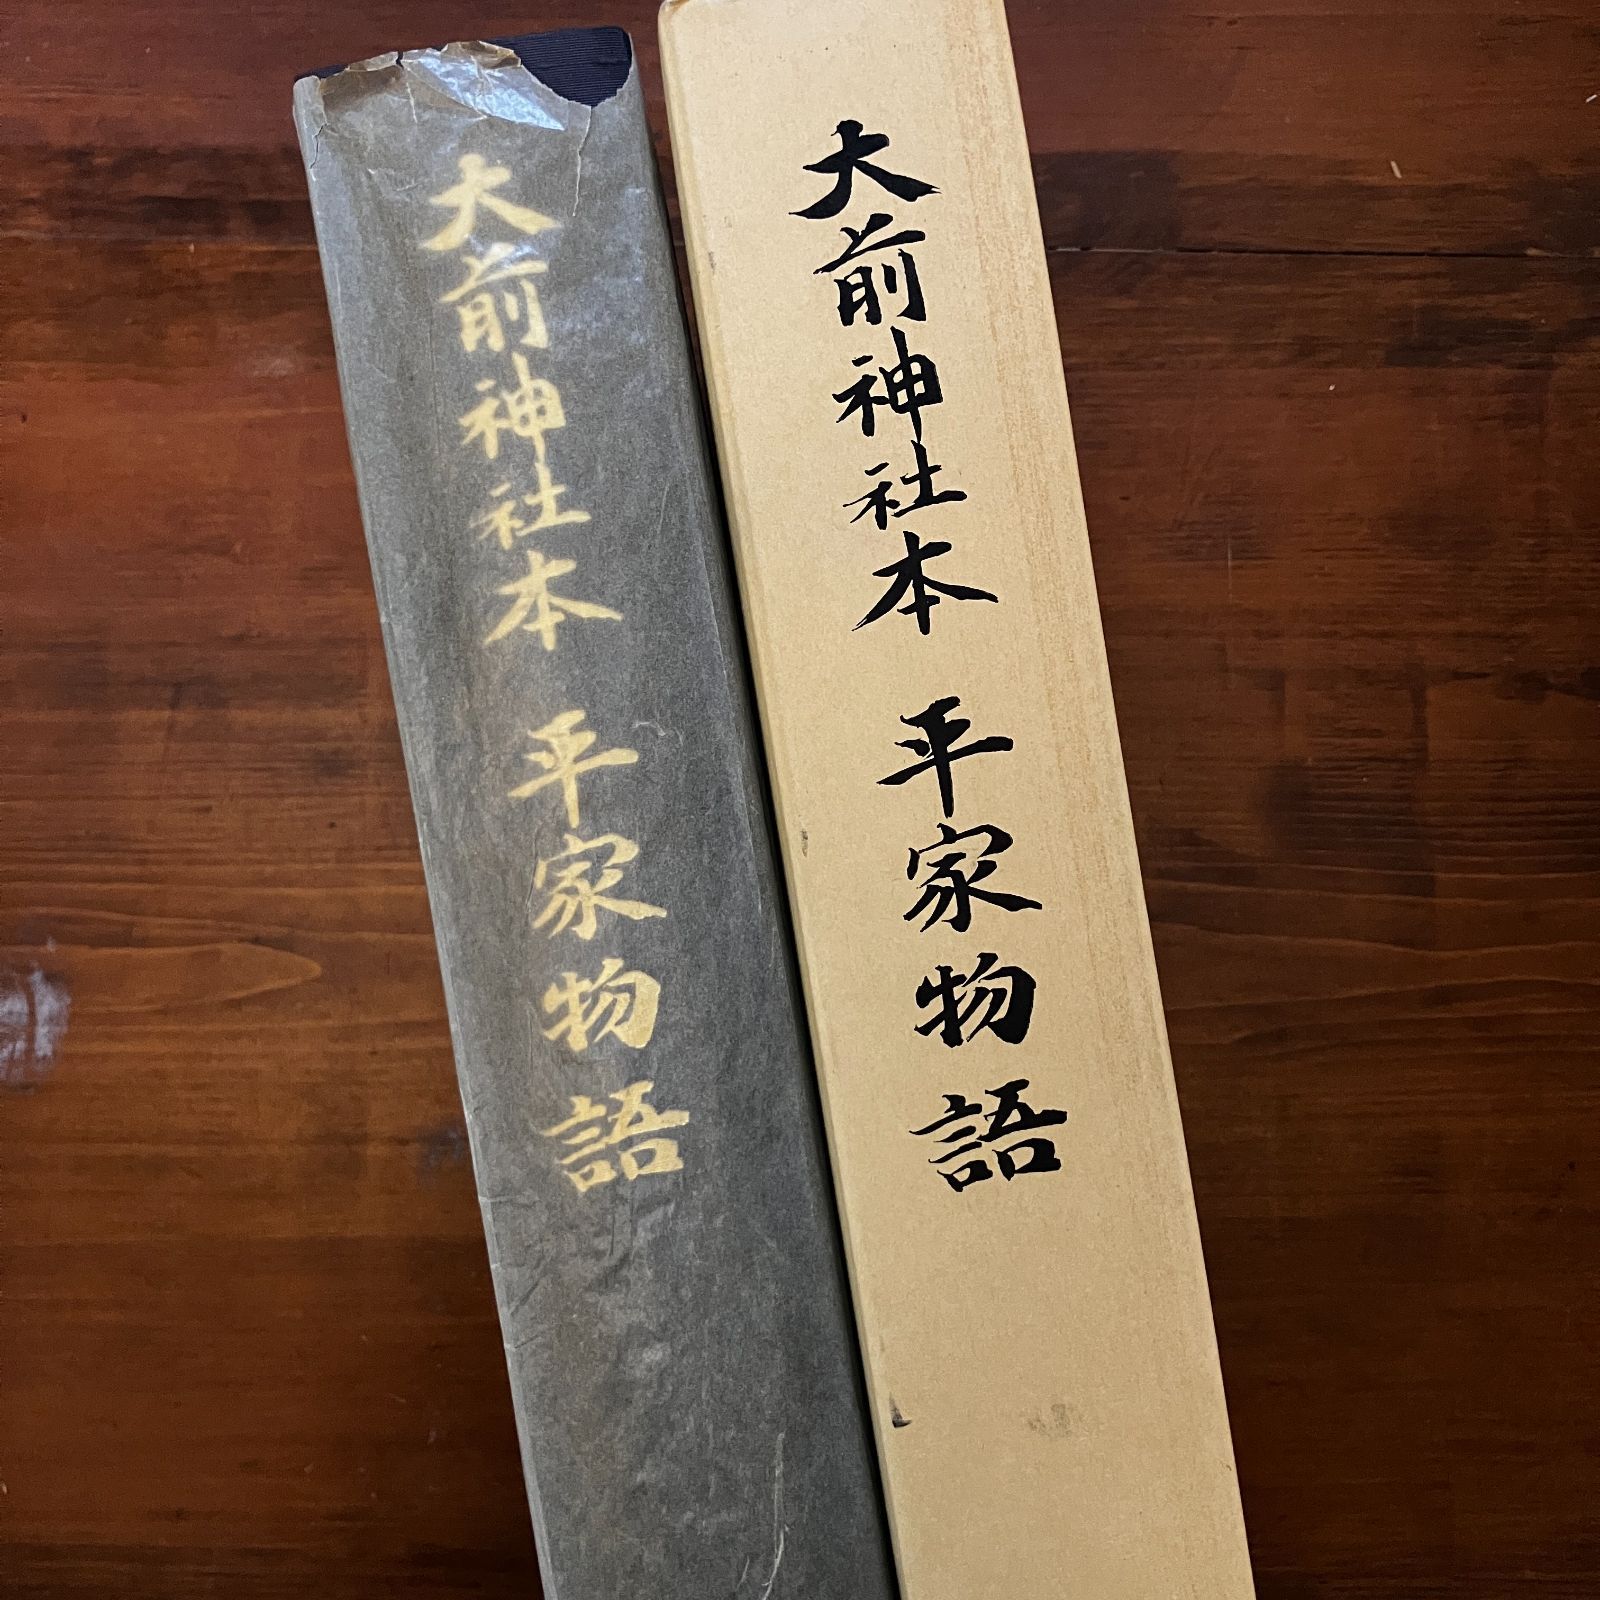 大前神社本 平家物語
大前神社本 平家物語